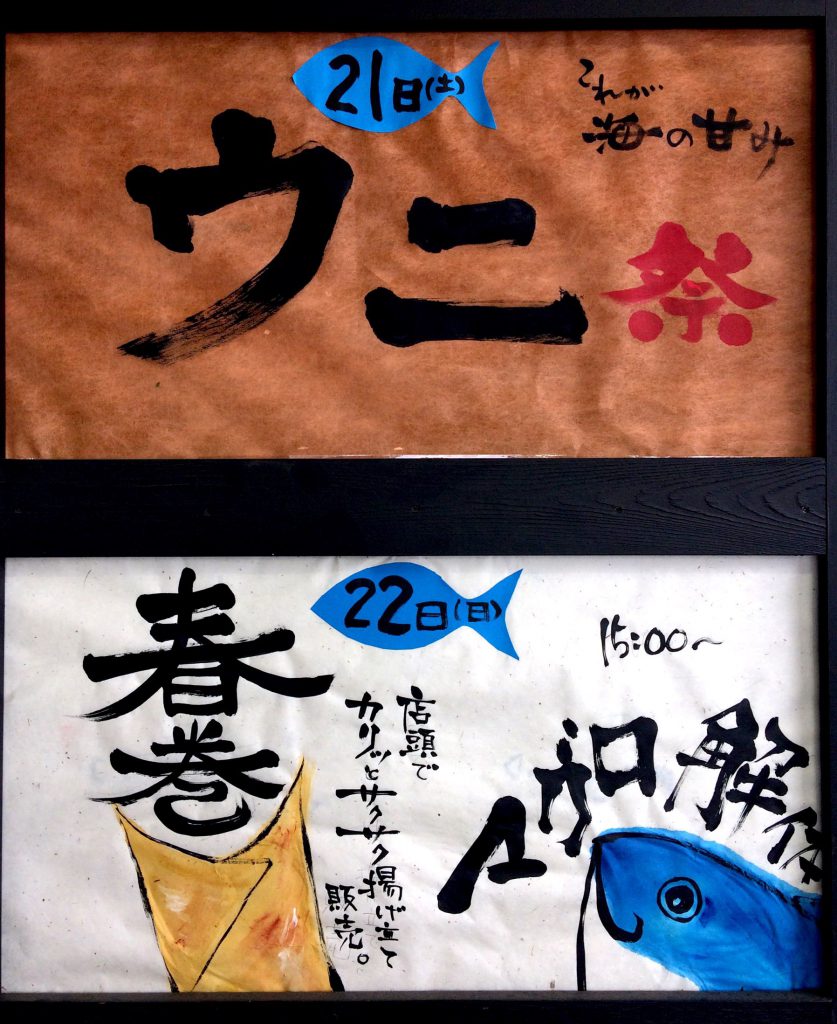 21日(土)
これが
海の甘み
ウニ
祭
22日(日)
15:00〜
春巻
店頭で
カリッとサクサク揚げ立て
販売。
マグロ解体